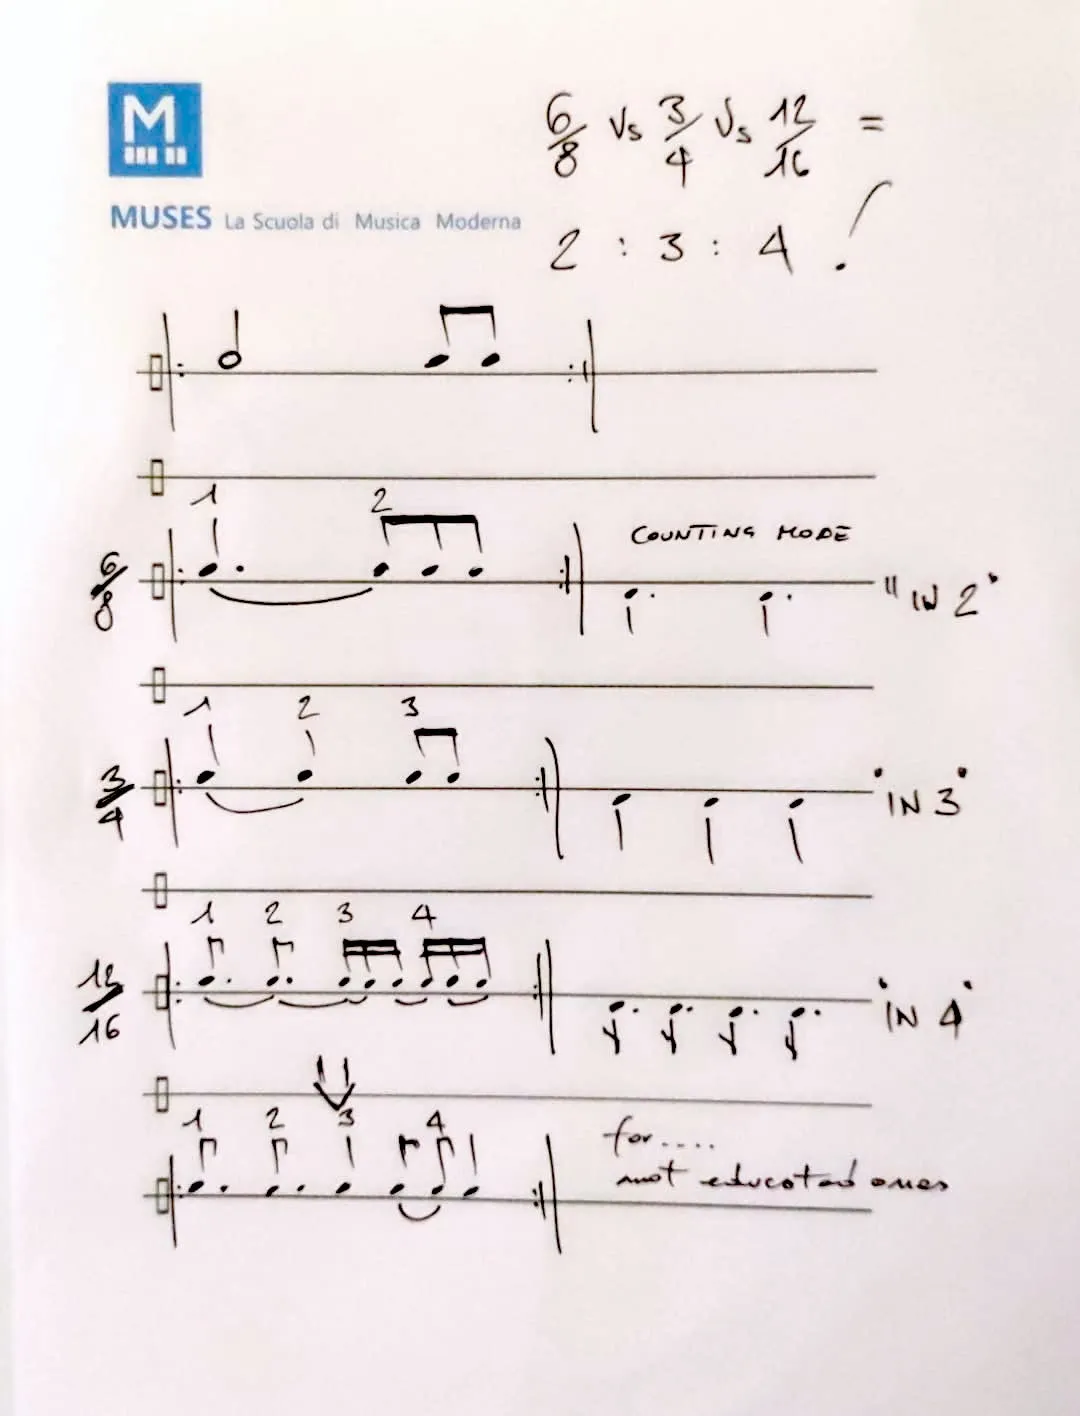 M
MUSES La Scuola di Musica Moderna
6/8 Vs 3/4 Vs 12/16 =
2 : 3 : 4 !
1 2
COUNTING MODE
6/8
"IN 2"
1 2 3
3/4
"IN 3"
1 2 3 4
12/16
"IN 4"
1 2 3 4
for....
not educated ones